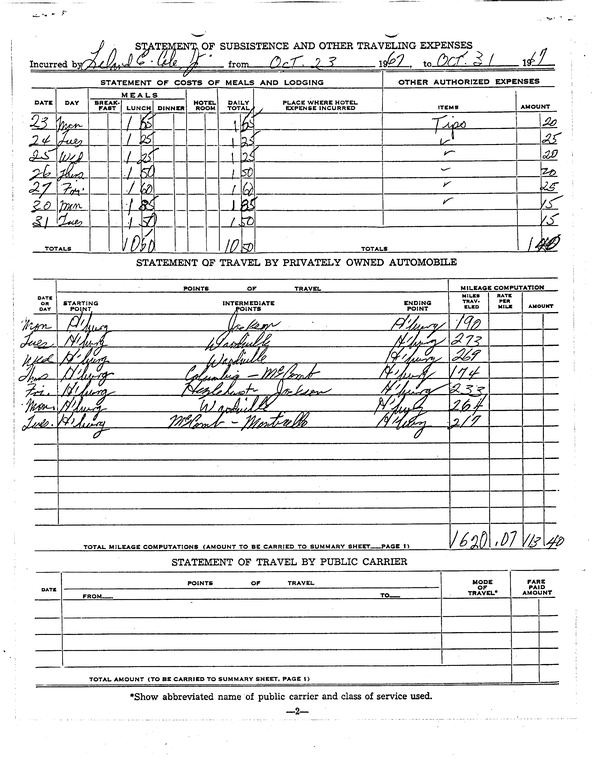 STATEMENT OF SUBSISTENCE AND OTHER TRAVELING EXPENSES
Incurred by Leland E. Cole, Jr. from Oct. 23 1967 to Oct. 31 1967
STATEMENT OF COSTS OF MEALS AND LODGING OTHER AUTHORIZED EXPENSES
MEALS
DATE DAY BREAK-FAST LUNCH DINNER HOTEL ROOM DAILY TOTAL PLACE WHERE HOTEL EXPENSE INCURRED ITEMS AMOUNT
23 Mon 1 65 1 65 Tips 20
24 Tues 1 25 1 25 ✓ 25
25 Wed 1 25 1 25 ✓ 20
26 Thus 1 50 1 50 ✓ 20
27 Fri. 1 60 1 60 ✓ 25
30 Mon 1 85 1 85 ✓ 15
31 Tues 1 50 1 50 15
TOTALS 10 60 10 50 TOTALS 1 40
STATEMENT OF TRAVEL BY PRIVATELY OWNED AUTOMOBILE
POINTS OF TRAVEL MILEAGE COMPUTATION
DATE OR DAY STARTING POINT INTERMEDIATE POINTS ENDING POINT MILES TRAV-ELED RATE PER MILE AMOUNT
Mon H'burg Jackson H'burg 190
Tues H'burg H'burg 273
Wed H'burg H'burg 269
Thus H'burg Columbia - McComb H'burg 174
Fri. H'burg Hazlehurst Jackson H'burg 233
Mon. H'burg H'burg 264
Tues. H'burg McComb - Monticello H'burg 217
TOTAL MILEAGE COMPUTATIONS (AMOUNT TO BE CARRIED TO SUMMARY SHEET PAGE 1) 1620 .07 113 40
STATEMENT OF TRAVEL BY PUBLIC CARRIER
DATE POINTS OF TRAVEL MODE OF TRAVEL* FARE PAID AMOUNT
FROM TO
TOTAL AMOUNT (TO BE CARRIED TO SUMMARY SHEET, PAGE 1)
*Show abbreviated name of public carrier and class of service used.
—2—